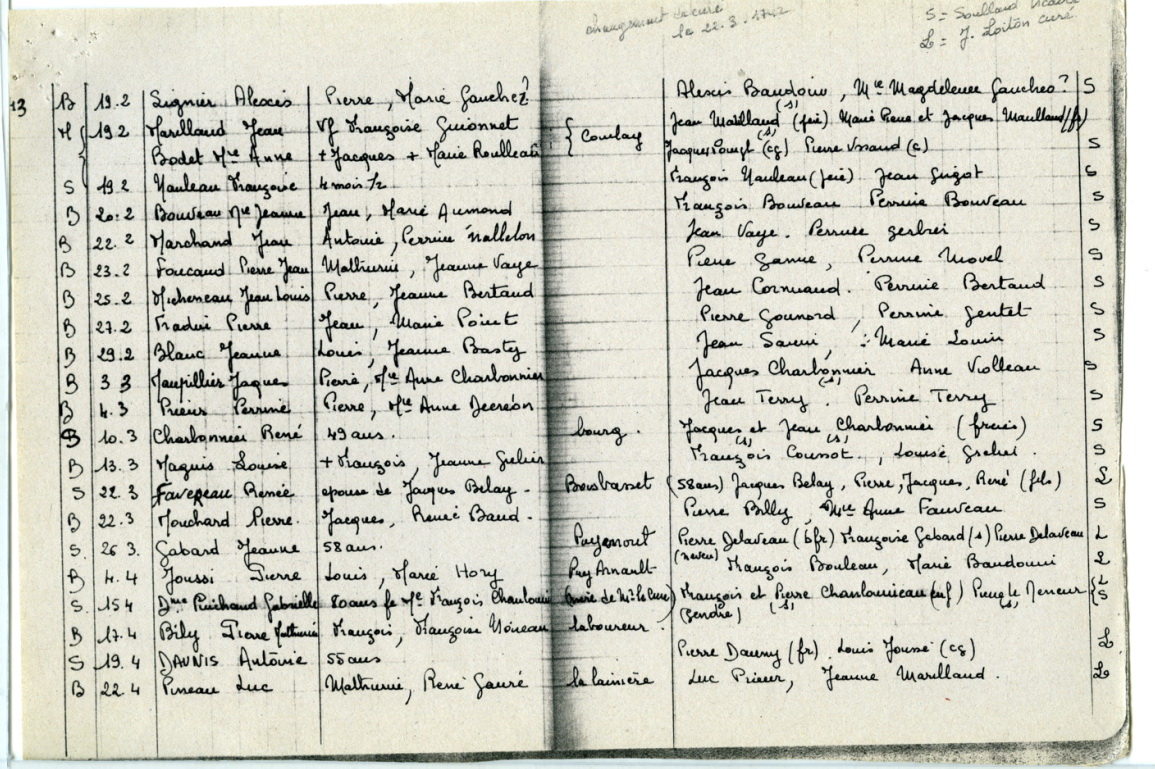 changement de curé
le 22.3.1742
S = Soulland Vicaire
L = J. Loiton curé
13 B 19.2 Signier Alexis Pierre, Marie Gauchez? Alexis Baudouin, Mie Magdeleine Gauches? S
M 19.2 Marillaud Jean Vf Françoise Guionnet { Coulay Jean Marillaud (s) (frè) Marie Rene et Jacques Marillaud (fr)
Bodet Mie Anne + Jacques + Marie Roulleau Jacques (s) (cg) Pierre (c) S
S 19.2 Nauleau Françoise 4 mois 1/2 François Nauleau (frè) Jean Gugot S
B 20.2 Bouveau Mie Jeanne Jean, Marie Aumond François Bouveau Perrine Bouveau S
B 22.2 Marchand Jean Antoine, Perrine Nallelon Jean Vaye. Perrine gerbrei S
B 23.2 Foucaud Pierre Jean Mathurin, Jeanne Vaye Pierre Ganne, Perrine Morel S
B 25.2 Micheneau Jean Louis Pierre, Jeanne Bertaud Jean Cornuaud. Perrine Bertaud S
B 27.2 Fradin Pierre Jean, Marie Point Pierre Gounord, Perrine Gentet S
B 29.2 Blanc Jeanne Louis, Jeanne Basty Jean Savin, Marie Louin S
B 3 3 Maupillier Jaques Pierre, Mie Anne Charbonnier Jacques Charbonnier Anne Violleau S
B 4.3 Prieur Perrine Pierre, Mie Anne Decreon Jean Terry (s). Perrine Terry S
S 10.3 Charbonnier René 49 ans. bourg. Jacques et Jean Charbonnier (frères) S
B 13.3 Maquis Louise + François, Jeanne Grelier François (s) Coussot (s), Louise Grelier. S
S 22.3 Favereau Renée epouse de Jacques Belay. Boisbasset (58ans) Jacques Belay, Pierre, Jacques, René (fils) L
B 22.3 Mouchard Pierre. Jacques, Renée Baud. Pierre Billy, Mie Anne Fauveau S
S. 26 3. Gabard Jeanne 58 ans. Puyemont Pierre Delaveau (bfr) Françoise Gabard (s) Pierre Delaveau (neveu) L
B 4.4 Joussi Pierre Louis, Marie Hory Puy Arnault François Bouleau, Marie Baudouin L
S. 15 4 Dme Puichaud Gabrielle 80 ans fe Me François Chanlouineau (mère de Mr le Curé) François et Pierre Chanlouineau Meneur { L S
(gendre) (s) (s)
B 17.4 Bily Pierre Mathurin François, Françoise Noneau laboureur.
S 19.4 DAUNIS Antoine 55 ans Pierre Dauny (fr). Louis Joussé (cg) L
B 22.4 Pineau Luc Mathurin, René Gauré la lainière Luc Prieur, Jeanne Marillaud. L